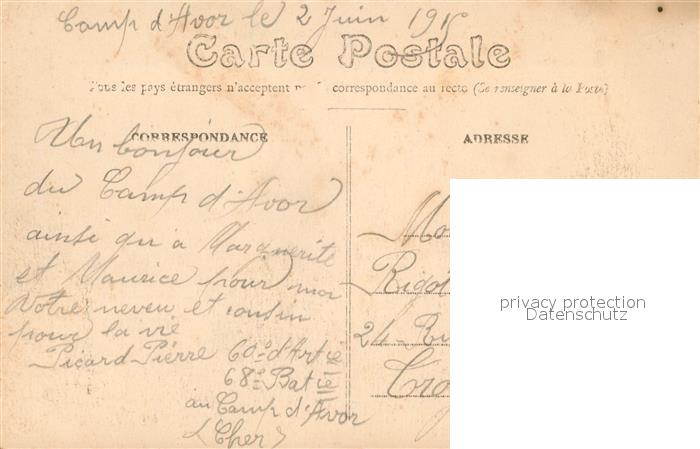 Camp d'Avor le 2 Juin 191
Carte Postale
Tous les pays étrangers n'acceptent correspondance au recto (Se renseigner à la Poste)
CORRESPONDANCE
Un bonjour
du Camp d'Avor
ainsi qu'a Marguerite
et Maurice pour moi
Votre neveu et cousin
pour la vie
Picard Pierre 60e d'Artie
68e Batie
au Camp d'Avor
(Cher)
ADRESSE
Mo
Rigo
24 Ru
Tro
privacy protection
Datenschutz